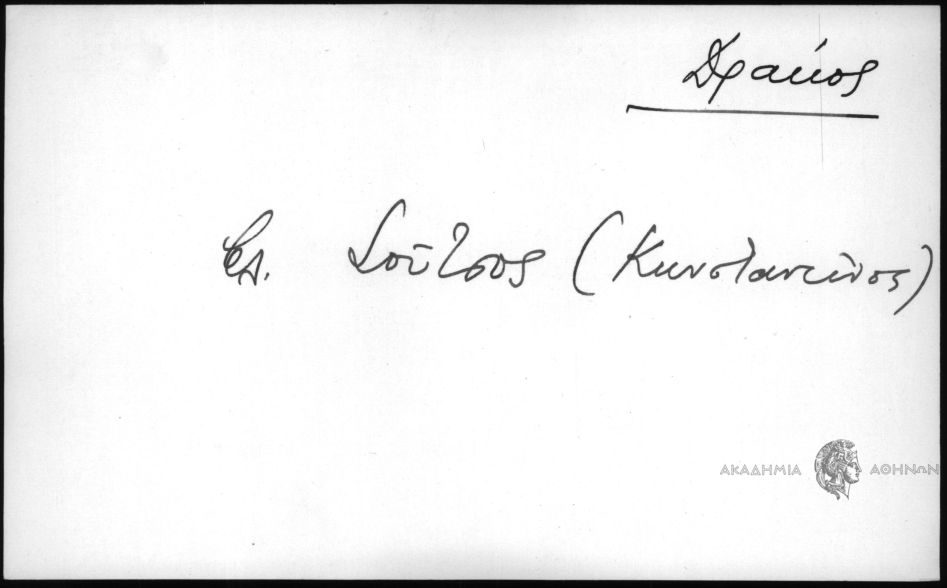 Δρακος
Βλ. Σοῦτσος (Κωνσταντῖνος)
ΑΚΑΔΗΜΙΑ ΑΘΗΝΩΝ